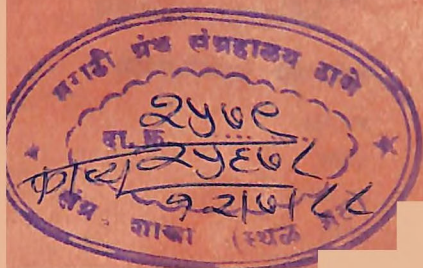 मराठी ग्रंथ संग्रहालय ठाणे
२५७९
वा. क्र.
काव्य २५६७८
१२।७।८८
शाखा (स्थळ